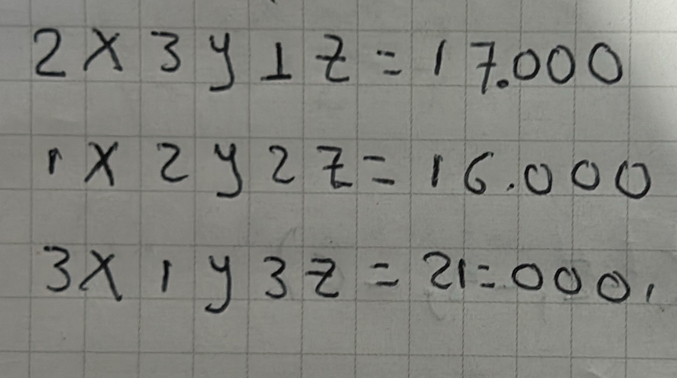 2x 3y 1z = 17.000
1x 2y 2z = 16.000
3x 1y 3z = 21=000,